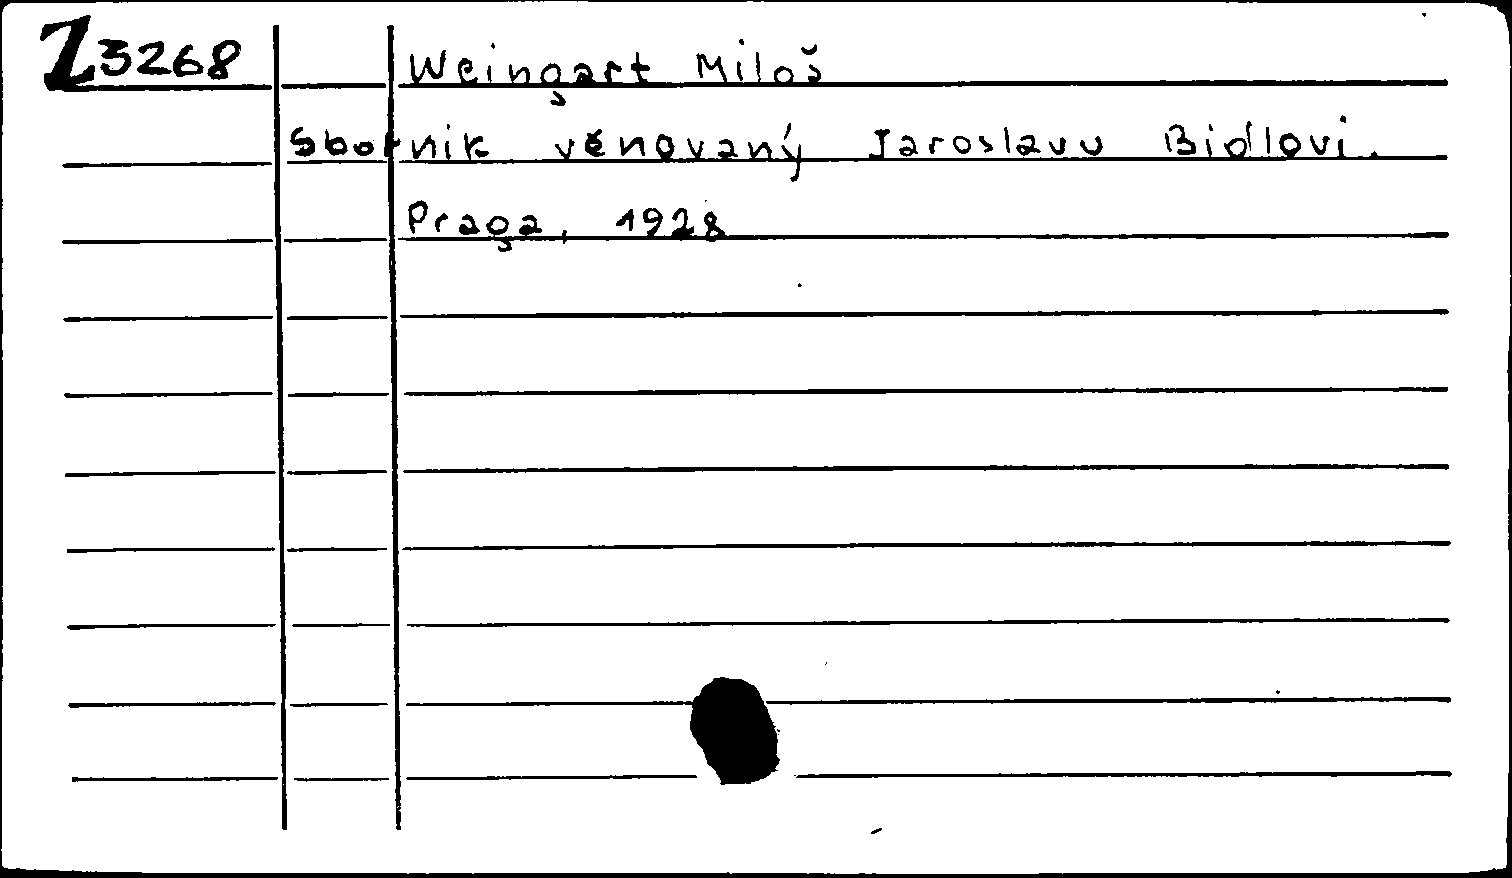 Z3268 Weingart Miloš
Sbornik věnovaný Jaroslavu Bidlovi.
Praga, 1928